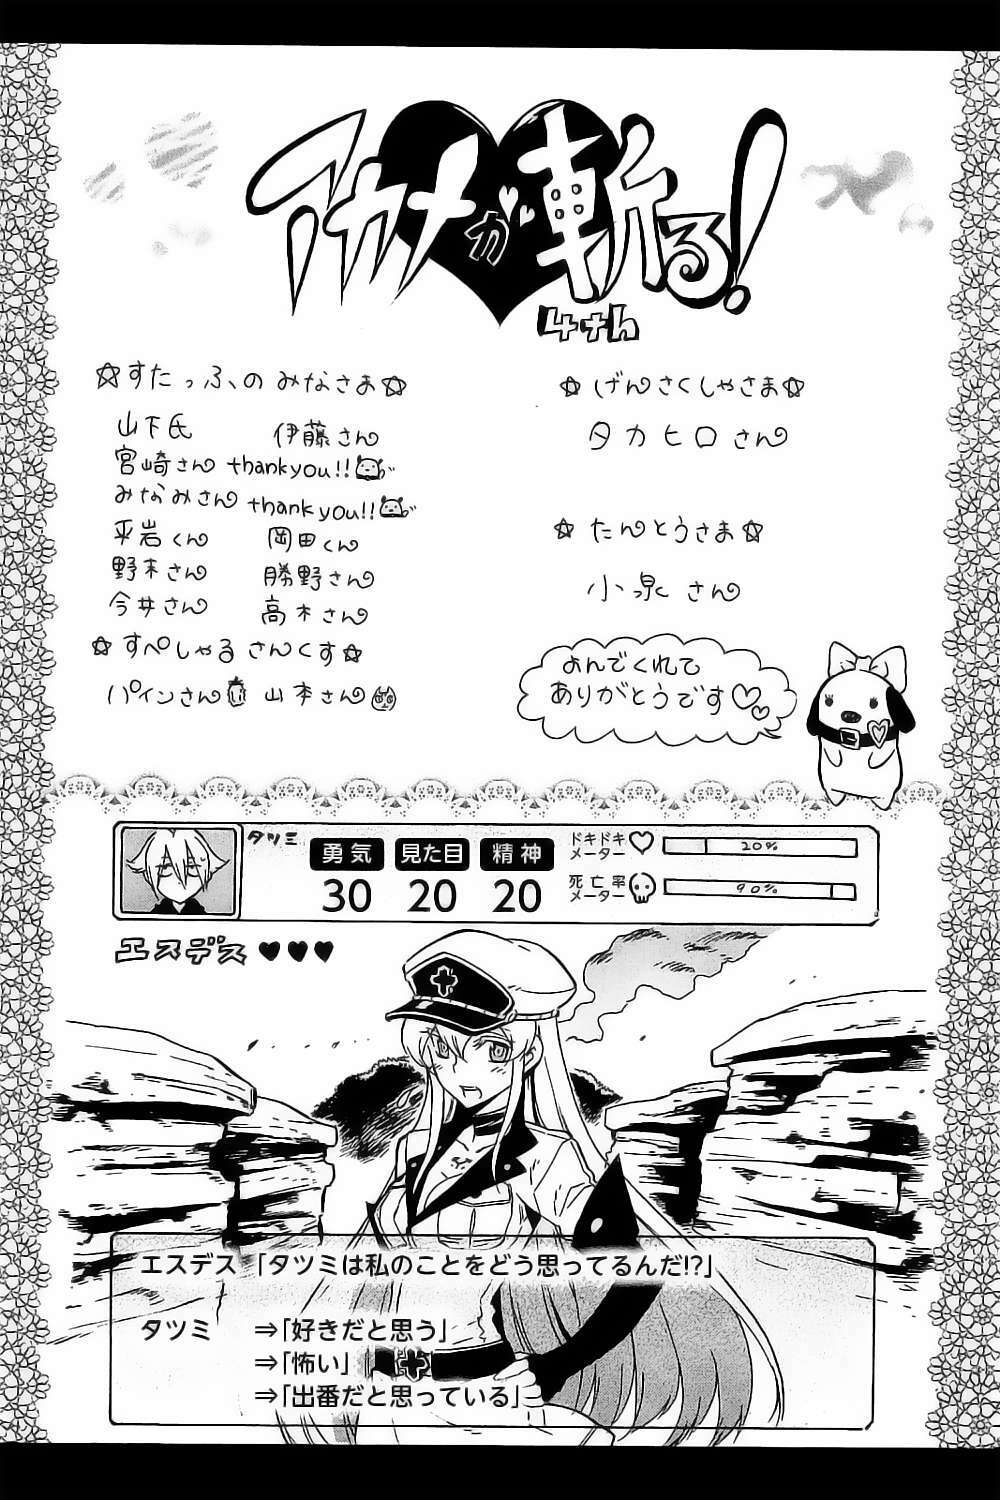 アカメが斬る!
4th
☆すたっふのみなさま☆
山下氏 伊藤さん
宮崎さん thankyou!!
みなみさん thankyou!!
平岩くん 岡田くん
野末さん 勝野さん
今井さん 高木さん
☆すぺしゃるさんくす☆
パインさん 山本さん
☆げんさくしゃさま☆
タカヒロさん
☆たんとうさま☆
小泉さん
よんでくれて
ありがとうです♡♡
タツミ
勇気 見た目 精神
30 20 20
ドキドキメーター 20%
死亡率メーター 90%
エスデス ♥♥♥
エスデス「タツミは私のことをどう思ってるんだ!?」
タツミ ⇒「好きだと思う」
⇒「怖い」
⇒「出番だと思っている」